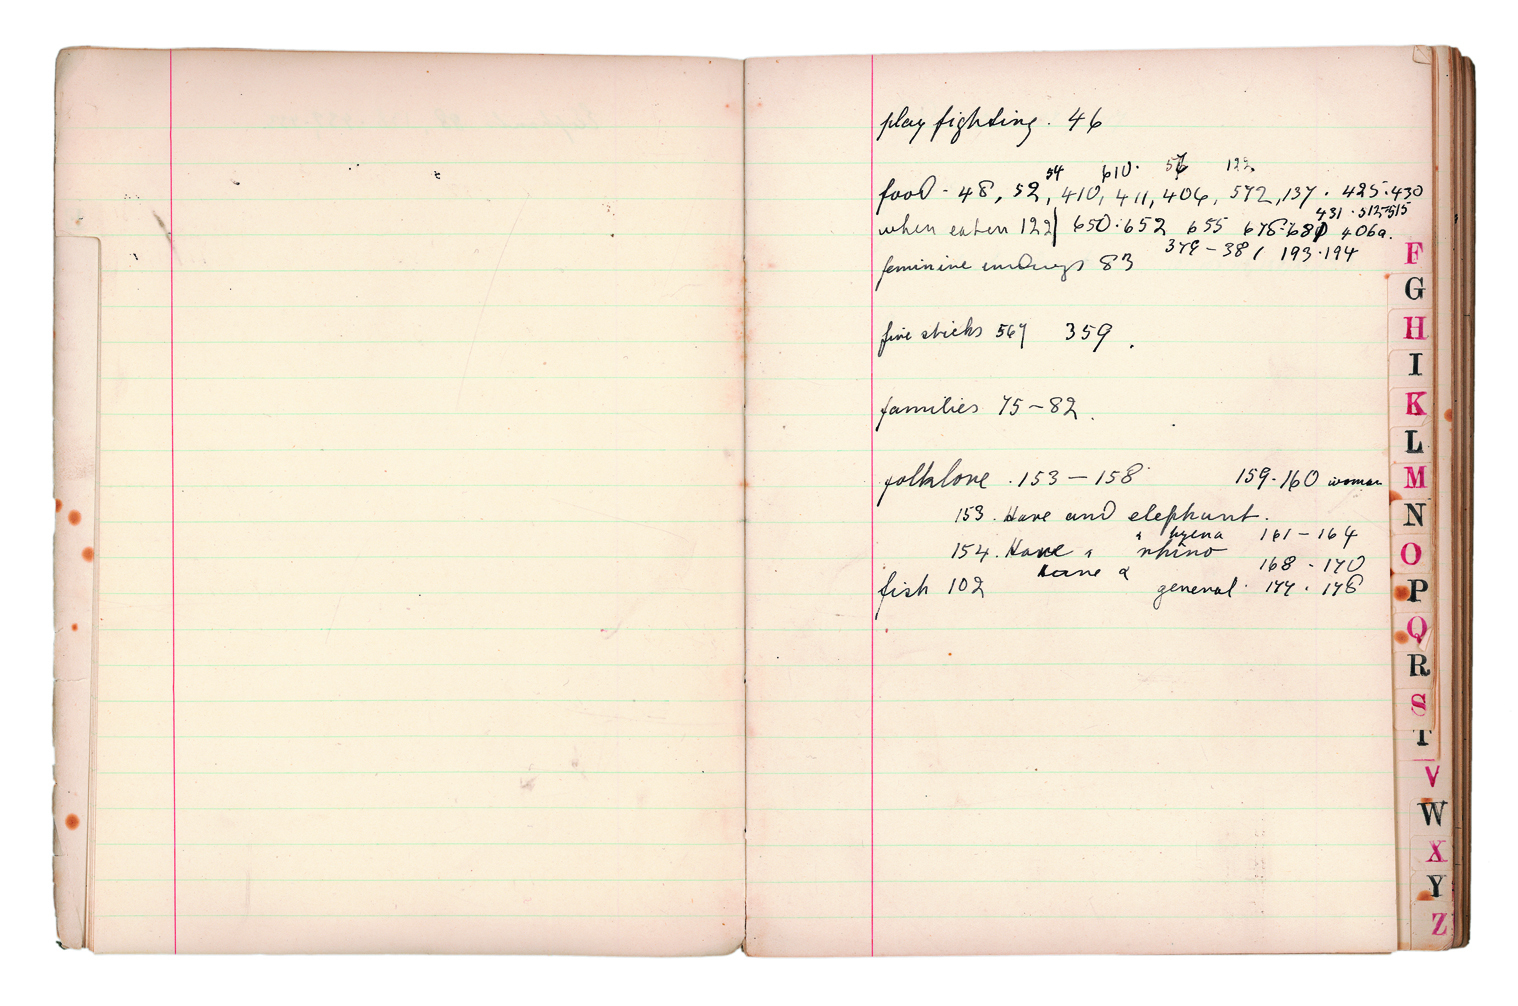 play fighting. 46
54 610. 122
food - 48, 52, 410, 411, 406, 572, 137. 425.430
431. 512-515
when eaten 122 | 650.652 655 678-680 406a.
379-381 193.194
feminine endings 83
fire sticks 567 359.
families 75-82.
folklore .153-158 159.160 woman
153. Hare and elephant.
" hyena 161-164
154. Hare " rhino
168-170
hare &
fish 102 general. 177. 178
F
G
H
I
K
L
M
N
O
P
Q
R
S
T
V
W
X
Y
Z